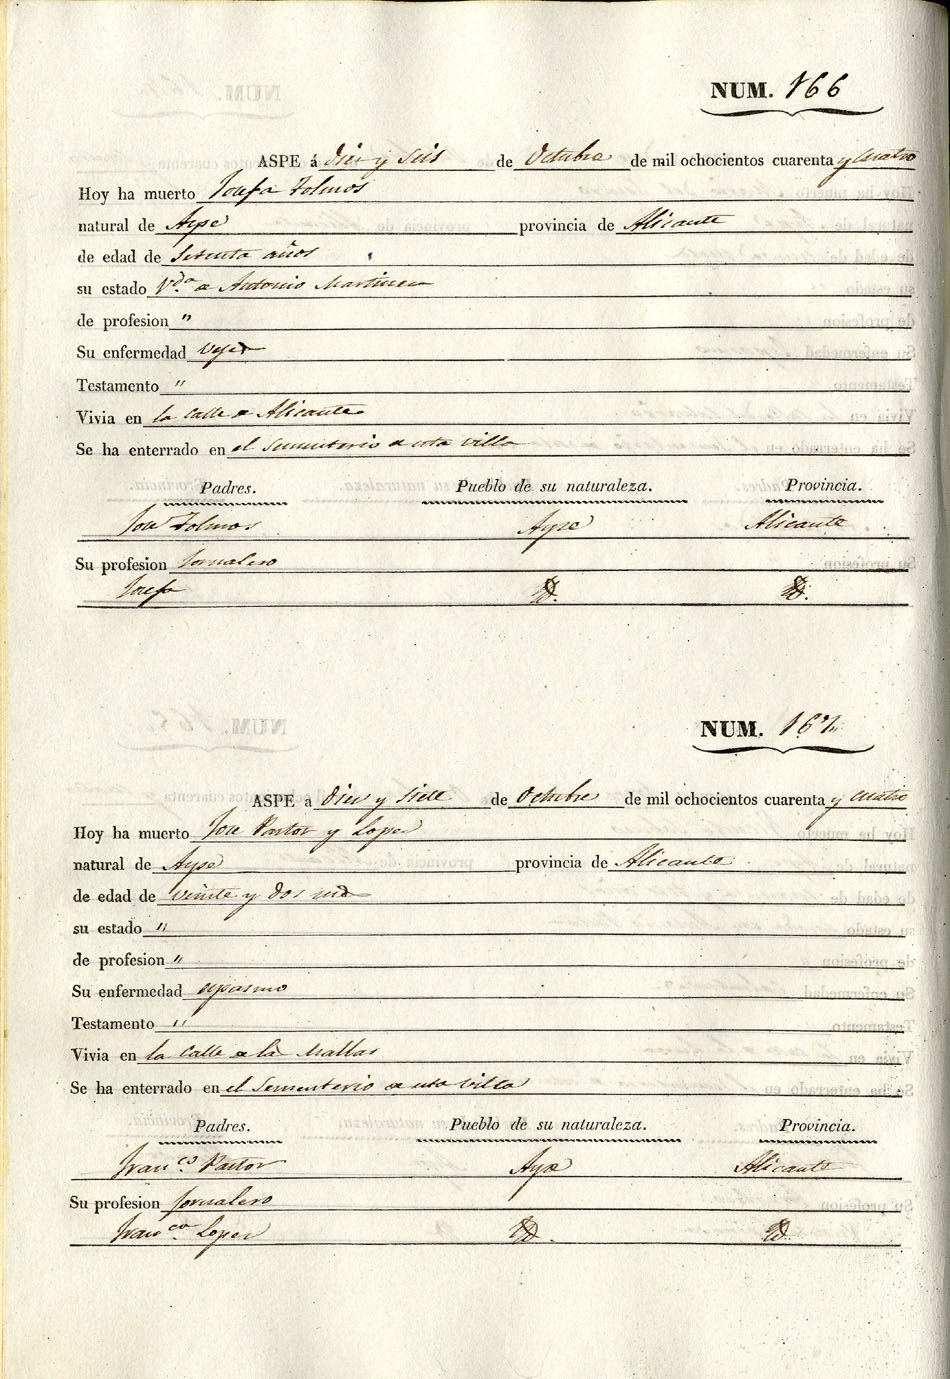 NUM. 166
ASPE á Dies y seis de Octubre de mil ochocientos cuarenta y cuatro
Hoy ha muerto Josefa Tolmos
natural de Aspe provincia de Alicante
de edad de Setenta años
su estado V.da de Antonio Martinez
de profesion "
Su enfermedad vejez
Testamento "
Vivia en la calle de Alicante
Se ha enterrado en el Sementerio de esta villa
Padres. Pueblo de su naturaleza. Provincia.
Jose Tolmos Aspe Alicante
Su profesion Jornalero
Josefa Id. Id.
NUM. 167
ASPE a Dies y siete de Octubre de mil ochocientos cuarenta y cuatro
Hoy ha muerto Jose Pastor y Lopez
natural de Aspe provincia de Alicante
de edad de veinte y dos
su estado "
de profesion "
Su enfermedad espasmo
Testamento "
Vivia en la Calle de la
Se ha enterrado en el Sementerio de esta villa
Padres. Pueblo de su naturaleza. Provincia.
Fran.co Pastor Aspe Alicante
Su profesion Jornalero
Fran.ca Lopez Id. Id.